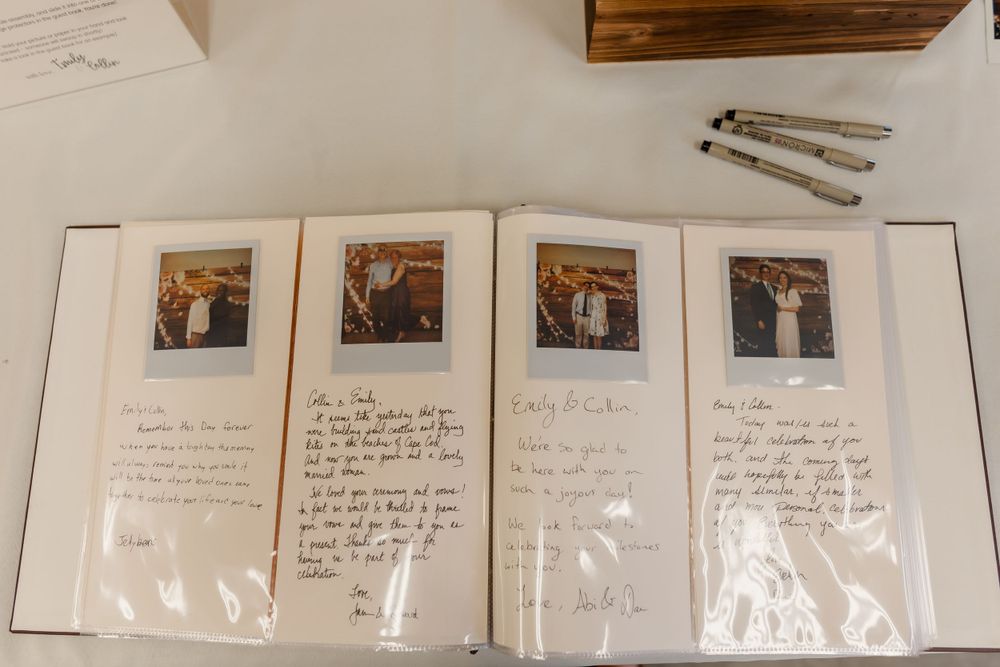 assembly, and slide it into one of
protectors in the guest book. You're done!
your picture or paper in your hand and look
someone will swoop in shortly!
look in the guest book for an example!
with love, Emily
& Collin
MICRON
Emily & Collin,
Remember this Day forever
when you have a big day this memory
will always remind you why you
will be the time all your loved ones came
together to celebrate your life and your love
Collin & Emily,
It seems like yesterday that you
were building sand castles and flying
kites on the beaches of Cape Cod.
And now you are grown and a lovely
married woman.
We loved your ceremony and vows!
In fact we would be thrilled to frame
your vows and give them to you as
a present. Thanks so much for
having us be part of your
celebration.
Love,
Jan &
Emily & Collin,
We're so glad to
be here with you on
such a joyous day!
We look forward to
celebrating your milestones
with you.
Love, Abi & Dan
Emily & Collin -
Today was/is such a
beautiful celebration of you
both, and the coming days
will hopefully be filled with
many similar, if smaller
and more personal, celebrations
of you. Everything
is